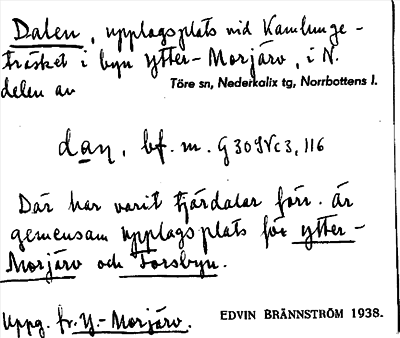 Dalen, upplagsplats vid Kamlunge-
träsket i byn Ytter-Morjärv, i N.
delen av Töre sn, Nederkalix tg, Norrbottens l.
dan, bf. m. G 30 SVc3, 116
Där har varit tjärdalar förr. är
gemensam upplagsplats för Ytter-
Morjärv och Forsbyn.
Uppg. fr. Y.-Morjärv. EDVIN BRÄNNSTRÖM 1938.